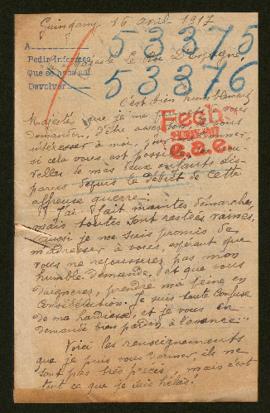 Guingamp 16 avril 1917
A
Pedir Informes
Que se hizo así
Devolver
53375
53376
Sa Majesté le Roi D'Espagne
C'est bien humblement
Majesté que je me
demander, d'être assez bon
intéresser à moi,
si cela vous est possible,
de mes deux enfants dis-
parus depuis le début de cette
affreuse guerre.
Fech
e.a.e
J'ai fait maintes démarches
mais toutes sont restées vaines,
aussi je me suis promis de
m'adresser à vous, espérant que
vous ne repousserez pas mon
humble demande, et que vous
daignerez, prendre ma peine en
considération. Je suis toute confuse
de ma hardiesse, et je vous en
demande bien pardon à l'avance...
Voici les renseignements
que je puis vous donner, ils ne
sont pas très précis, mais c'est
tout ce que je sais hélas!